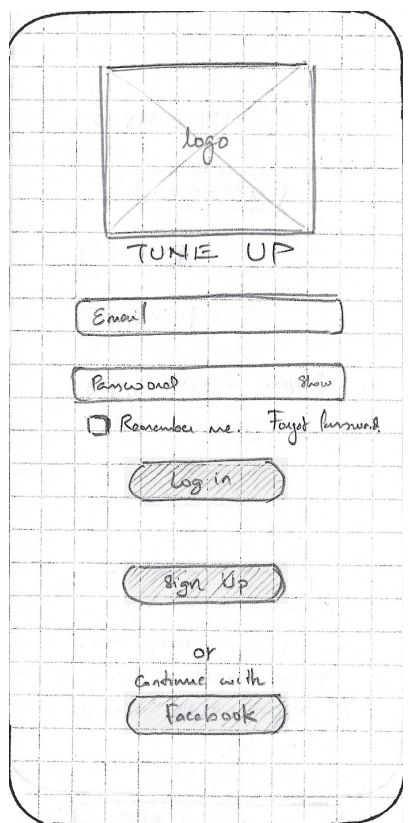 logo
TUNE UP
Email
Password Show
Remember me. Forgot Password
Log in
Sign Up
or
Continue with
Facebook